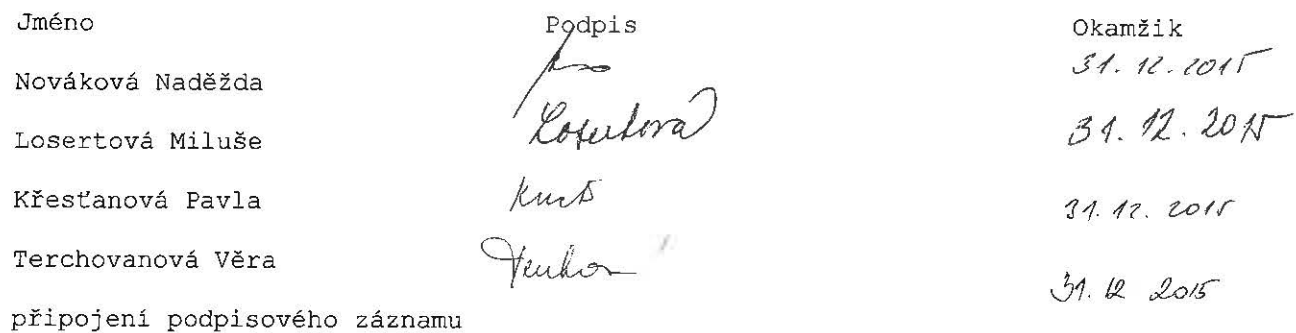 Jméno Podpis Okamžik
Nováková Naděžda 31. 12. 2015
Losertová Miluše Losertová 31. 12. 2015
Křesťanová Pavla 31. 12. 2015
Terchovanová Věra 31. 12 2015
připojení podpisového záznamu